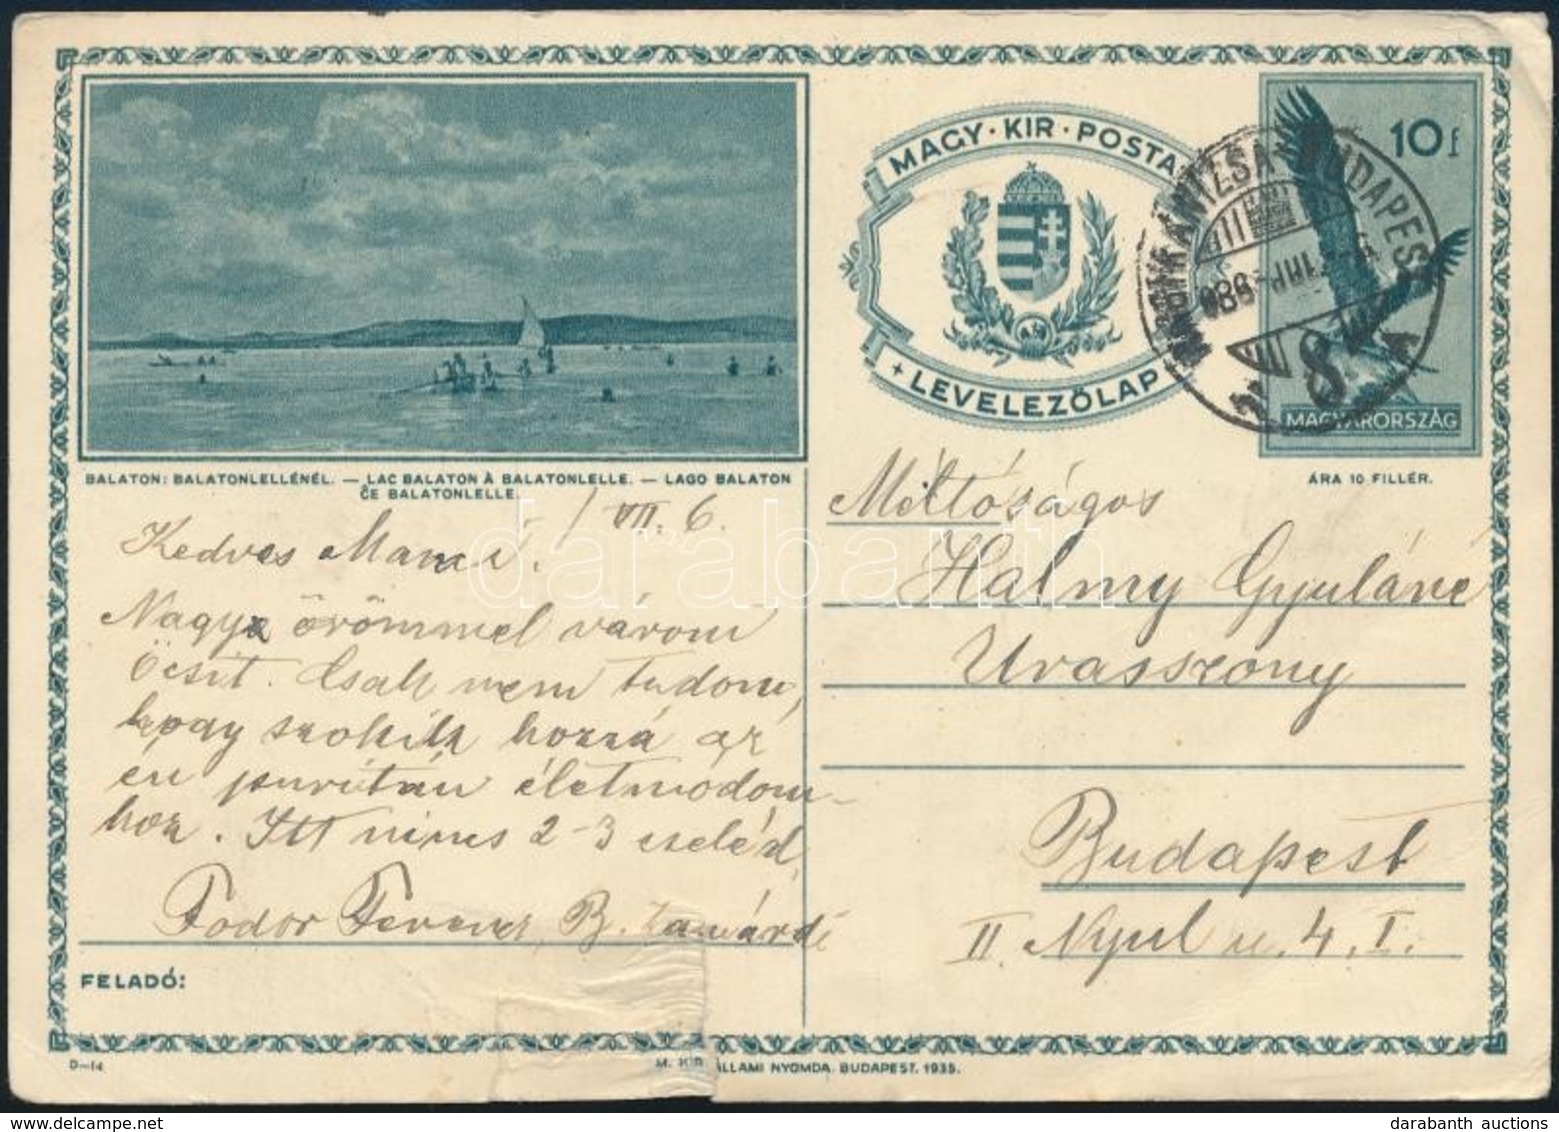 MAGY · KIR · POSTA
LEVELEZŐLAP
10 f
MAGYARORSZÁG
ÁRA 10 FILLÉR.
NAGYKANIZSA BUDAPEST
8 A
BALATON: BALATONLELLÉNÉL. — LAC BALATON À BALATONLELLE. — LAGO BALATON
ĈE BALATONLELLE.
VII. 6.
Kedves Mami!
Nagy örömmel várom
Öcsit. Csak nem tudom,
hogy szokik hozzá az
én puritán életmódom-
hoz. Itt nincs 2-3 cseléd,
Fodor Ferenc, B.
FELADÓ:
Méltóságos
Halmy Gyuláné
Úrasszony
Budapest
II. Nyul u. 4. I.
D—14
M. KIR. ÁLLAMI NYOMDA. BUDAPEST. 1935.
darabanth
darabanth auctions